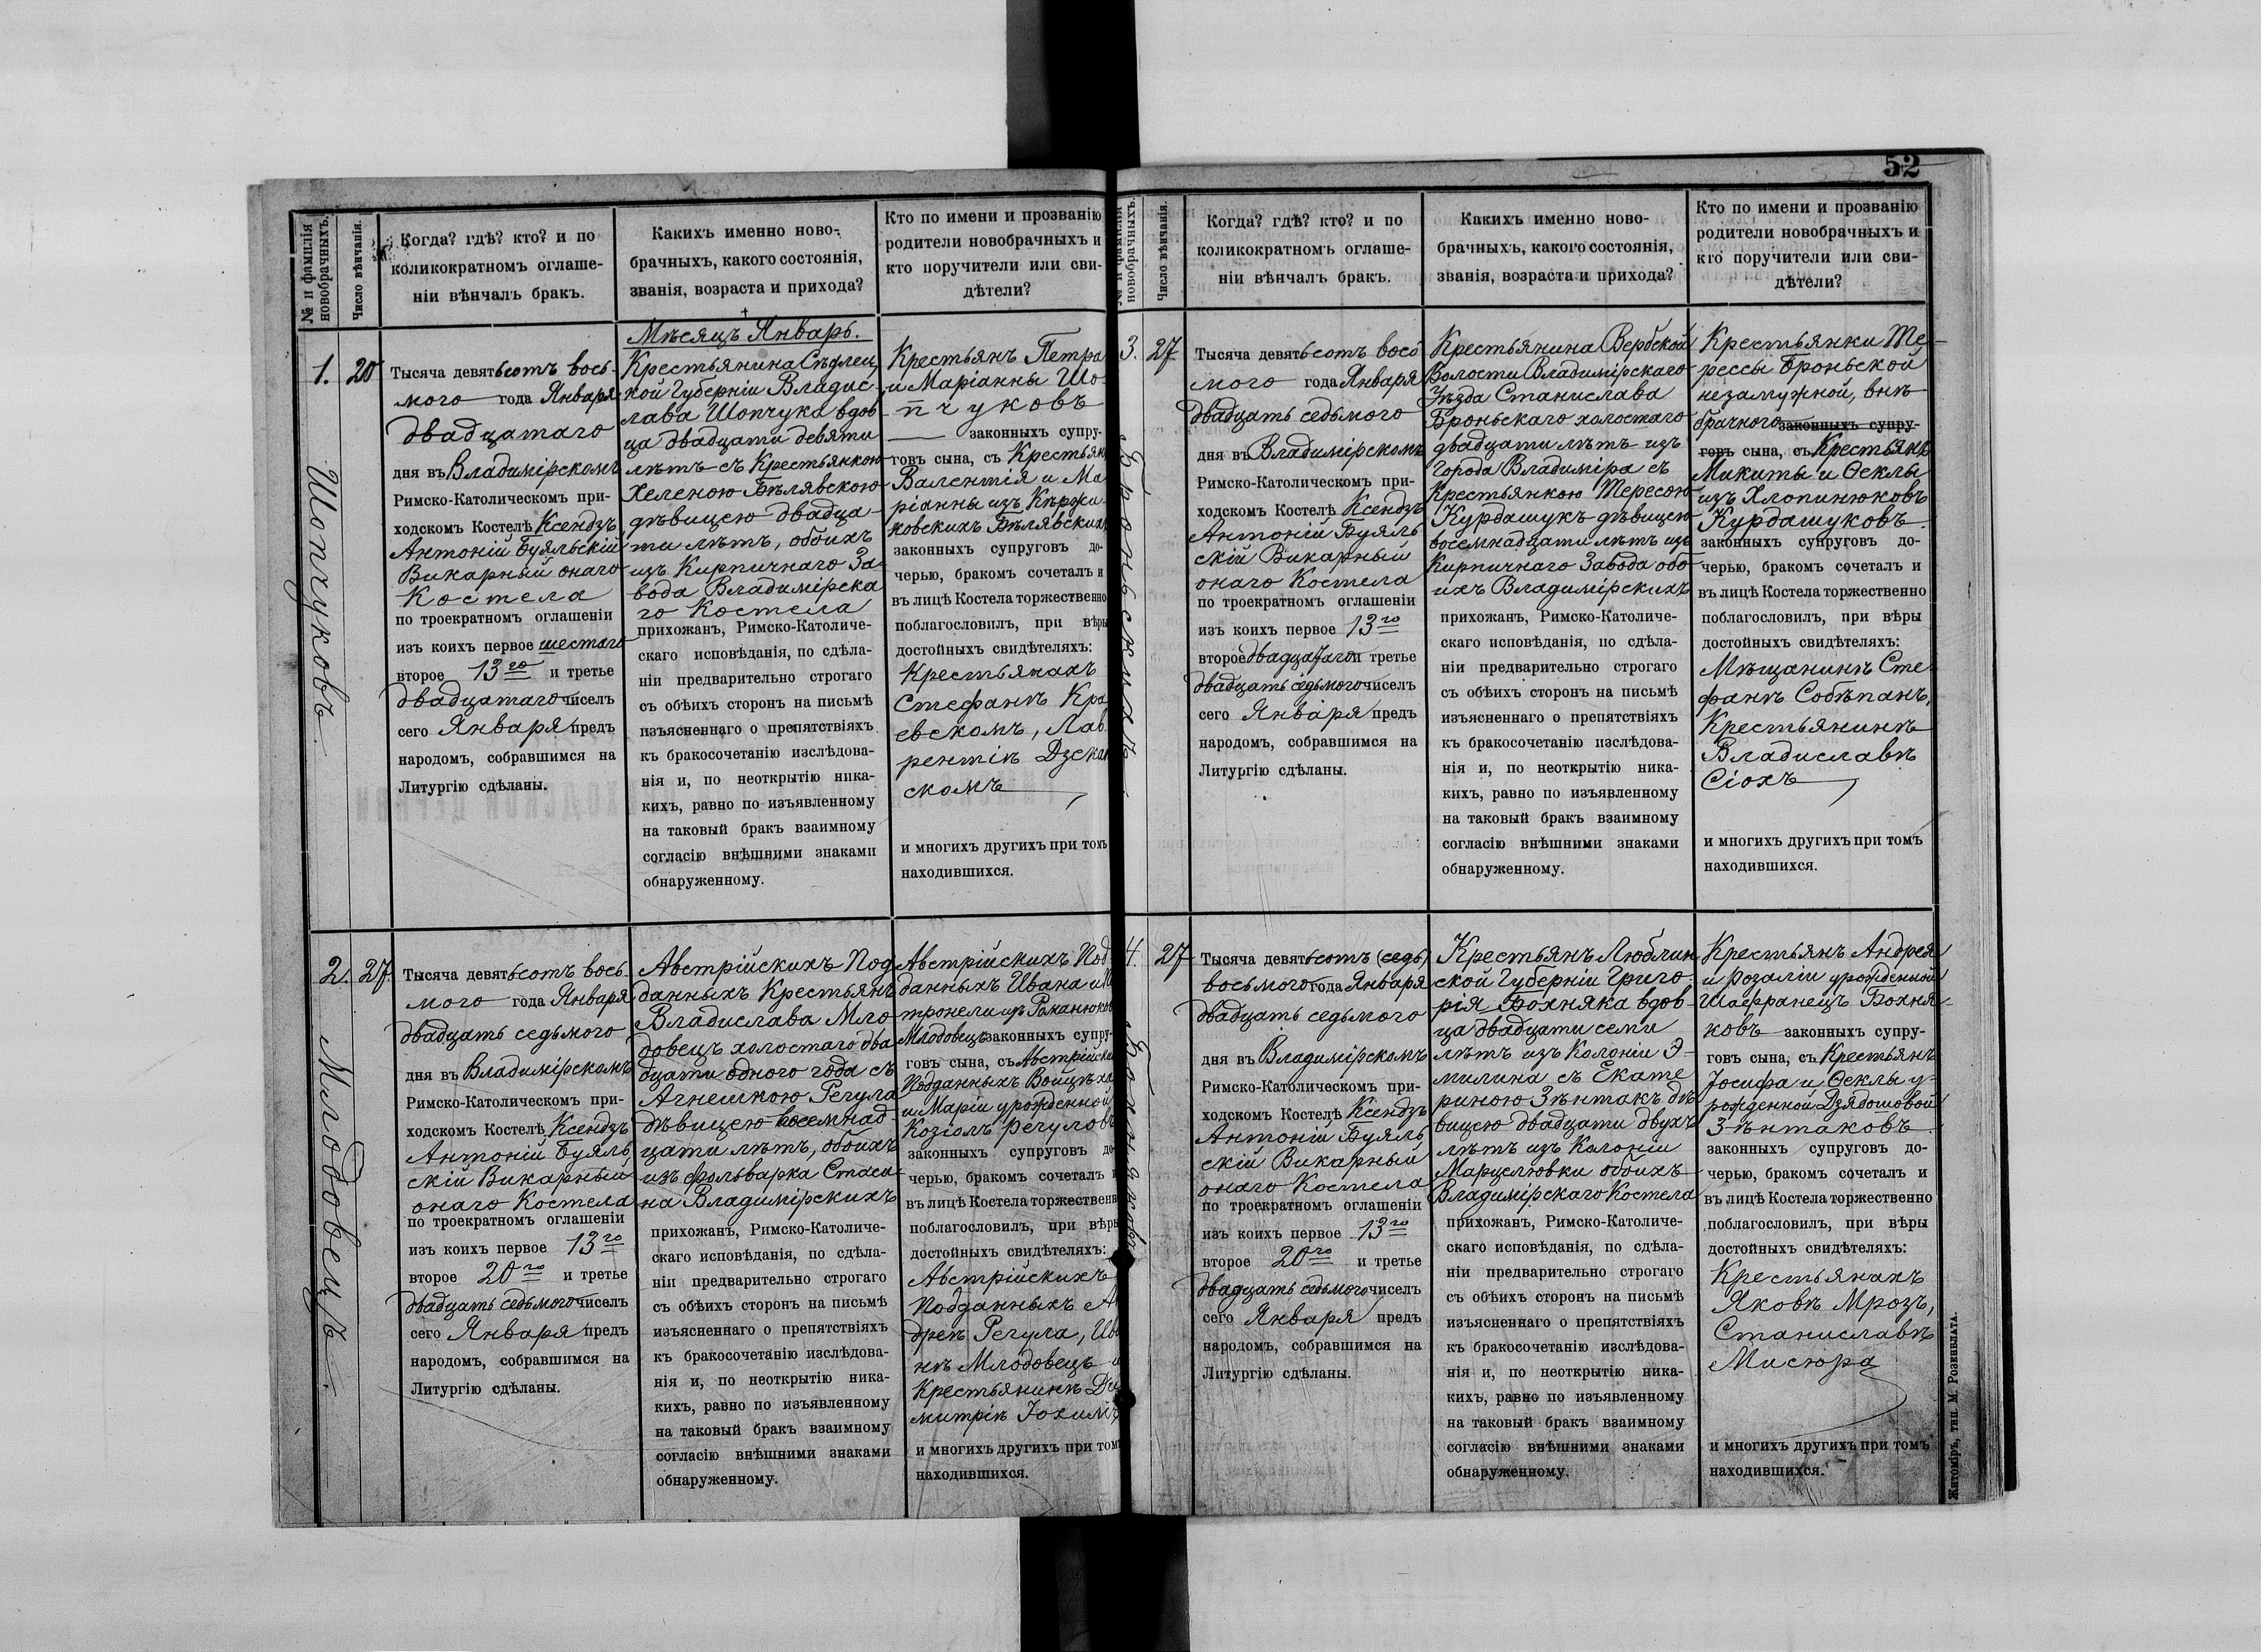 52
№ и фамилія новобрачныхъ.
Число вѣнчанія.
Когда? гдѣ? кто? и по
коликократномъ оглаше-
ніи вѣнчалъ бракъ.
Какихъ именно ново-
брачныхъ, какого состоянія,
званія, возраста и прихода?
Кто по имени и прозванію
родители новобрачныхъ и
кто поручители или сви-
дѣтели?
1.
20
Шопчуковъ.
Тысяча девятьсотъ вось-
мого года Января
двадцатаго
дня въ Владимірскомъ
Римско-Католическомъ при-
ходскомъ Костелѣ Ксендзъ
Антоній Буяльскій
Викарный онаго
Костела
по троекратномъ оглашеніи
изъ коихъ первое шестаго
второе 13го и третье
двадцатаго чиселъ
сего Января предъ
народомъ, собравшимся на
Литургію сдѣланы.
Мѣсяцъ Январь.
Крестьянина Сѣдлец
кой Губерніи Владис
лава Шопчука вдов
ца двадцати девяти
лѣтъ съ Крестьянкою
Хеленою Бѣлявскою
дѣвицею двадца-
ти лѣтъ, обоихъ
изъ Кирпичнаго За-
вода Владимірска
го Костела
прихожанъ, Римско-Католиче-
скаго исповѣданія, по сдѣла-
ніи предварительно строгаго
съ обѣихъ сторонъ на письмѣ
изъясненнаго о препятствіяхъ
къ бракосочетанію изслѣдова-
нія и, по неоткрытію ника-
кихъ, равно по изъявленному
на таковый бракъ взаимному
согласію внѣшними знаками
обнаруженному.
Крестьянъ Петра
и Маріанны Шо-
пчуковъ
законныхъ супру-
говъ сына, съ Крестьян
Валентія и Ма
ріанны изъ Кѣржи-
ковскихъ Бѣлявскихъ
законныхъ супруговъ до-
черью, бракомъ сочеталъ и
въ лицѣ Костела торжественно
поблагословилъ, при вѣры
достойныхъ свидѣтеляхъ:
Крестьянахъ
Стефанѣ Кра
евскомъ, Лав
рентіѣ Дзекан
скомъ
и многихъ другихъ при томъ
находившихся.
2.
27.
Млодовецъ.
Тысяча девятьсотъ вось-
мого года Января
двадцать седьмого
дня въ Владимірскомъ
Римско-Католическомъ при-
ходскомъ Костелѣ Ксендзъ
Антоній Буяль
скій Викарный
онаго Костела
по троекратномъ оглашеніи
изъ коихъ первое 13го
второе 20го и третье
двадцать седьмого чиселъ
сего Января предъ
народомъ, собравшимся на
Литургію сдѣланы.
Австрійскихъ Под
данныхъ Крестьянъ
Владислава Мло
довецъ холостаго два
дцати одного года съ
Агнешкою Регула
дѣвицею восемнад-
цати лѣтъ, обоихъ
изъ фольварка Стаси-
на Владимірскихъ
прихожанъ, Римско-Католиче-
скаго исповѣданія, по сдѣла-
ніи предварительно строгаго
съ обѣихъ сторонъ на письмѣ
изъясненнаго о препятствіяхъ
къ бракосочетанію изслѣдова-
нія и, по неоткрытію ника-
кихъ, равно по изъявленному
на таковый бракъ взаимному
согласію внѣшними знаками
обнаруженному.
Австрійскихъ Под
данныхъ Ивана и
тронели изъ Романюков
Млодовецъ законныхъ супру-
говъ сына, съ Австрійски
Подданныхъ Войцѣха
и Маріи урожденной
Козіолъ Регуловъ
законныхъ супруговъ до
черью, бракомъ сочеталъ
въ лицѣ Костела торжественн
поблагословилъ, при вѣры
достойныхъ свидѣтеляхъ:
Австрійскихъ
Подданныхъ
дреѣ Регула, Ива
нѣ Млодовецъ
Крестьянинѣ Ди
митріѣ Іохимъ
и многихъ другихъ при том
находившихся.
№ и фамилія новобрачныхъ.
Число вѣнчанія.
Когда? гдѣ? кто? и по
коликократномъ оглаше-
ніи вѣнчалъ бракъ.
Какихъ именно ново-
брачныхъ, какого состоянія,
званія, возраста и прихода?
Кто по имени и прозванію
родители новобрачныхъ и
кто поручители или сви-
дѣтели?
3.
27
Броньскихъ
Тысяча девятьсотъ вось
мого года Января
двадцать седьмого
дня въ Владимірскомъ
Римско-Католическомъ при-
ходскомъ Костелѣ Ксендзъ
Антоній Буяль
скій Викарный
онаго Костела
по троекратномъ оглашеніи
изъ коихъ первое 13го
второе двадцатаго и третье
двадцать седьмого чиселъ
сего Января предъ
народомъ, собравшимся на
Литургію сдѣланы.
Крестьянина Вербской
Волости Владимірскаго
Уѣзда Станислава
Броньскаго холостаго
двадцати лѣтъ изъ
города Владиміра съ
Крестьянкою Тересою
Курдашукъ дѣвицею
восемнадцати лѣтъ изъ
Кирпичнаго Завода обо
ихъ Владимірскихъ
прихожанъ, Римско-Католиче-
скаго исповѣданія, по сдѣла-
ніи предварительно строгаго
съ обѣихъ сторонъ на письмѣ
изъясненнаго о препятствіяхъ
къ бракосочетанію изслѣдова-
нія и, по неоткрытію ника-
кихъ, равно по изъявленному
на таковый бракъ взаимному
согласію внѣшними знаками
обнаруженному.
Крестьянки Те-
рессы Броньской
незамужной, внѣ
брачного законныхъ супру-
говъ сына, съ Крестьянъ
Микиты и Ѳеклы
изъ Хлопинюковъ
Курдашуковъ
законныхъ супруговъ до-
черью, бракомъ сочеталъ и
въ лицѣ Костела торжественно
поблагословилъ, при вѣры
достойныхъ свидѣтеляхъ:
Мѣщанинѣ Сте
фанѣ Собѣпанъ,
Крестьянинѣ
Владиславѣ
Сіохъ
и многихъ другихъ при томъ
находившихся.
4.
27
Бохняковъ
Тысяча девятьсотъ (седь)
восьмого года Января
двадцать седьмого
дня въ Владимірскомъ
Римско-Католическомъ при-
ходскомъ Костелѣ Ксендзъ
Антоній Буяль
скій Викарный
онаго Костела
по троекратномъ оглашеніи
изъ коихъ первое 13го
второе 20го и третье
двадцать седьмого чиселъ
сего Января предъ
народомъ, собравшимся на
Литургію сдѣланы.
Крестьянъ Люблин
ской Губерніи Григо-
рія Бохняка вдов-
ца двадцати семи
лѣтъ изъ Колоніи Э-
милина съ Екате
риною Зѣнтакъ дѣ
вицею двадцати двухъ
лѣтъ изъ Колоніи
Марцелювки обоихъ
Владимірскаго Костела
прихожанъ, Римско-Католиче-
скаго исповѣданія, по сдѣла-
ніи предварительно строгаго
съ обѣихъ сторонъ на письмѣ
изъясненнаго о препятствіяхъ
къ бракосочетанію изслѣдова-
нія и, по неоткрытію ника-
кихъ, равно по изъявленному
на таковый бракъ взаимному
согласію внѣшними знаками
обнаруженному.
Крестьянъ Андрея
и Розаліи урожденной
Шафранецъ Бохня
ковъ законныхъ супру-
говъ сына, съ Крестьянъ
Іосифа и Ѳеклы у-
рожденной Дзядошовой
Зѣнтаковъ
законныхъ супруговъ до-
черью, бракомъ сочеталъ и
въ лицѣ Костела торжественно
поблагословилъ, при вѣры
достойныхъ свидѣтеляхъ:
Крестьянахъ
Яковѣ Мрозъ,
Станиславѣ
Мисюра
и многихъ другихъ при томъ
находившихся.
Житоміръ, тип. М. Розенблата.